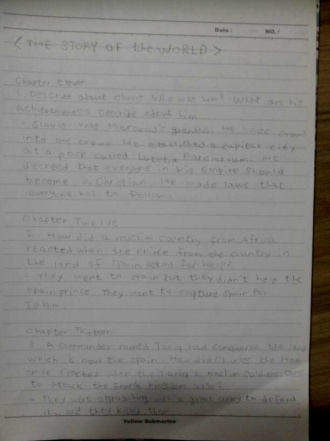 Date: NO.
< THE STORY OF the WORLD >
Chapter
1. Describe about Clovis who was him? What are his
achievements Describe about him
- Clovis was Merovius's grandson. He
into one empire He established a capital city
at a place called Lutetia Parisiorum. He
decided that everyone in his Empire should
become a Christian He made laws that
everyone had to follow
Chapter Twelve
2. How did a muslim country from Africa
reacted when the prince from the country in
the land of Spain asked for help?
- They went to Spain but they didn't help the
spain prince. They want to capture Spain for
Chapter Thirteen
3. a commander named Tariq had conquered the land
which is now the spain. How did Charles the
react when the Tariq's Muslim Soldiers
to attack the Frank kingdom also?
- They was with a great army to defend
it, and they
Yellow Submarine